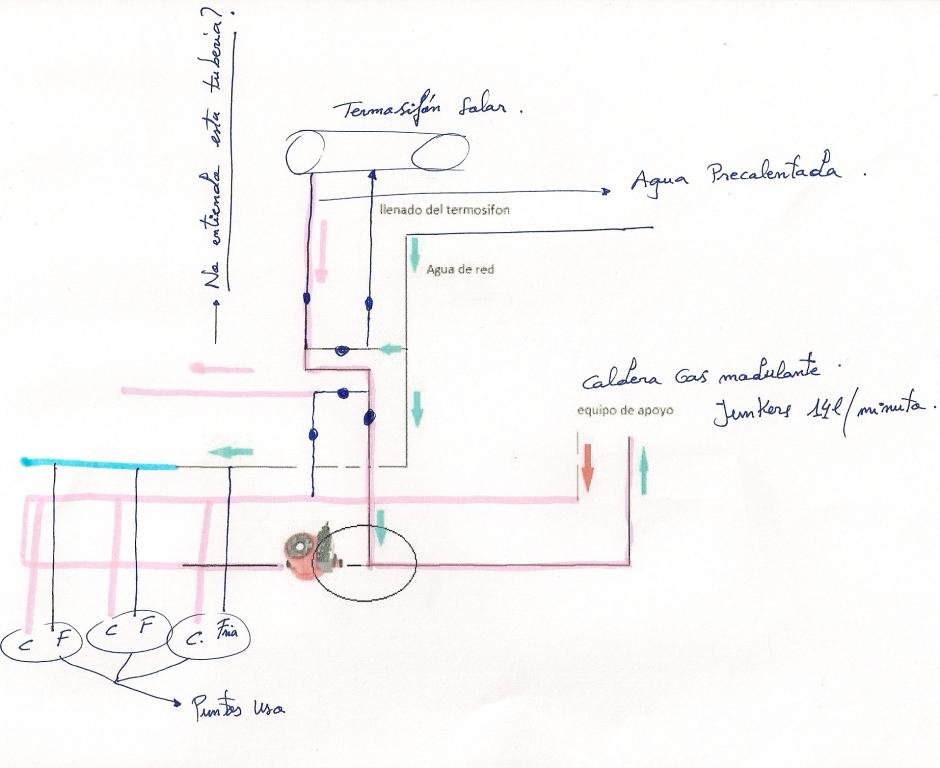 No entiendo esta tuberia?
Termosifón Solar.
Agua Precalentada.
llenado del termosifon
Agua de red
Caldera Gas modulante.
equipo de apoyo
Junkers 14l/minuto.
C F
C F
C. Fria
Puntos uso